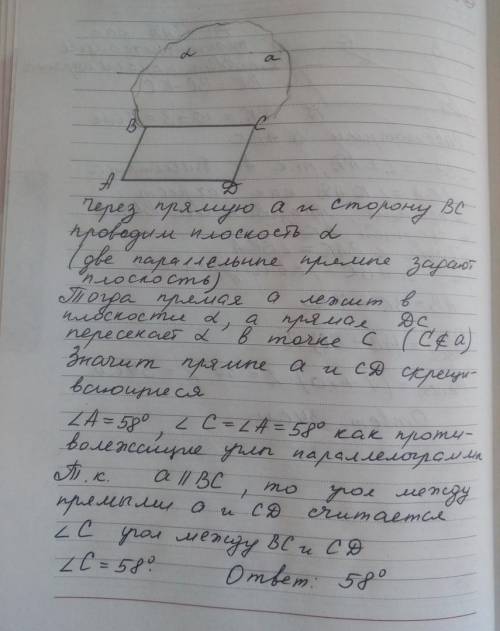 α a
B C
A D
Через прямую a и сторону BC
проводим плоскость α
(две параллельные прямые задают
плоскость)
Тогда прямая a лежит в
плоскости α, а прямая DC
пересекает α в точке C (C∉a)
Значит прямые a и CD скрещи-
вающиеся
∠A=58°, ∠C=∠A=58° как проти-
волежащие углы параллелограмма
Т.к. a∥BC, то угол между
прямыми a и CD считается
∠C угол между BC и CD
∠C=58°. Ответ: 58°